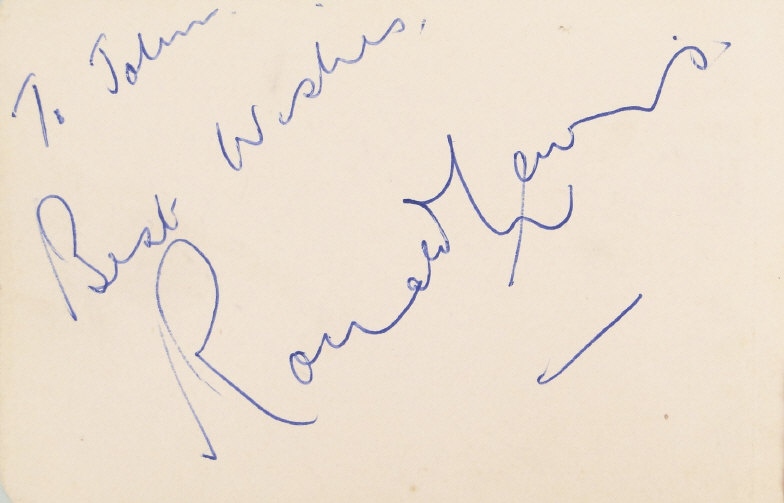 To John
Best Wishes,
Ronald Lewis